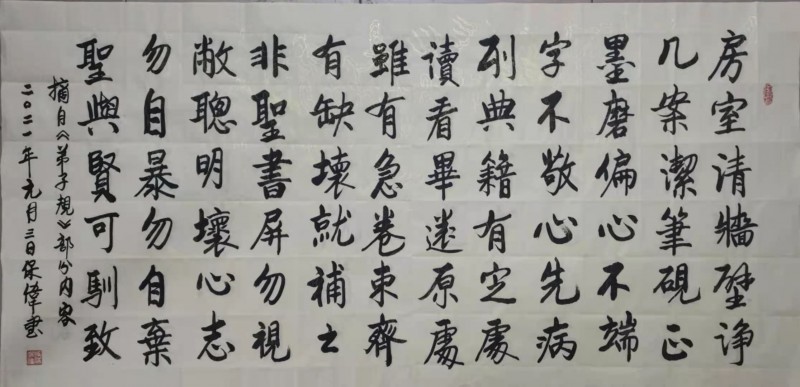 房室清牆壁诤
几案潔筆硯正
墨磨偏心不端
字不敬心先病
列典籍有定處
讀看畢还原處
雖有急卷束齊
有缺壞就補之
非聖書屏勿視
敝聰明壞心志
勿自暴勿自棄
聖與賢可馴致
摘自《弟子規》部分内容
二〇二一年元月三日保偉書